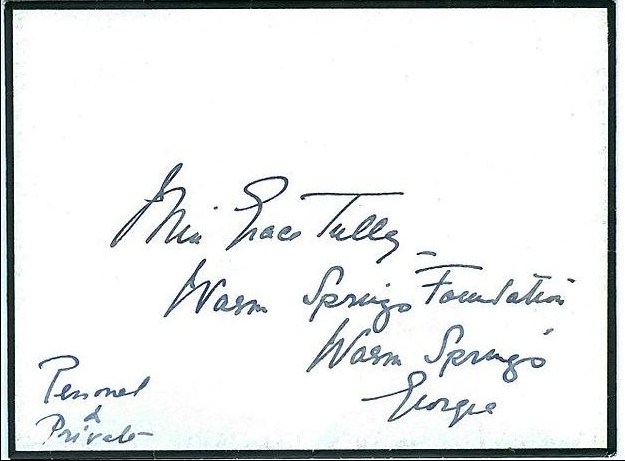 Miss Grace Tully –
Warm Springs Foundation
Warm Springs
Georgia
Personal
&
Private